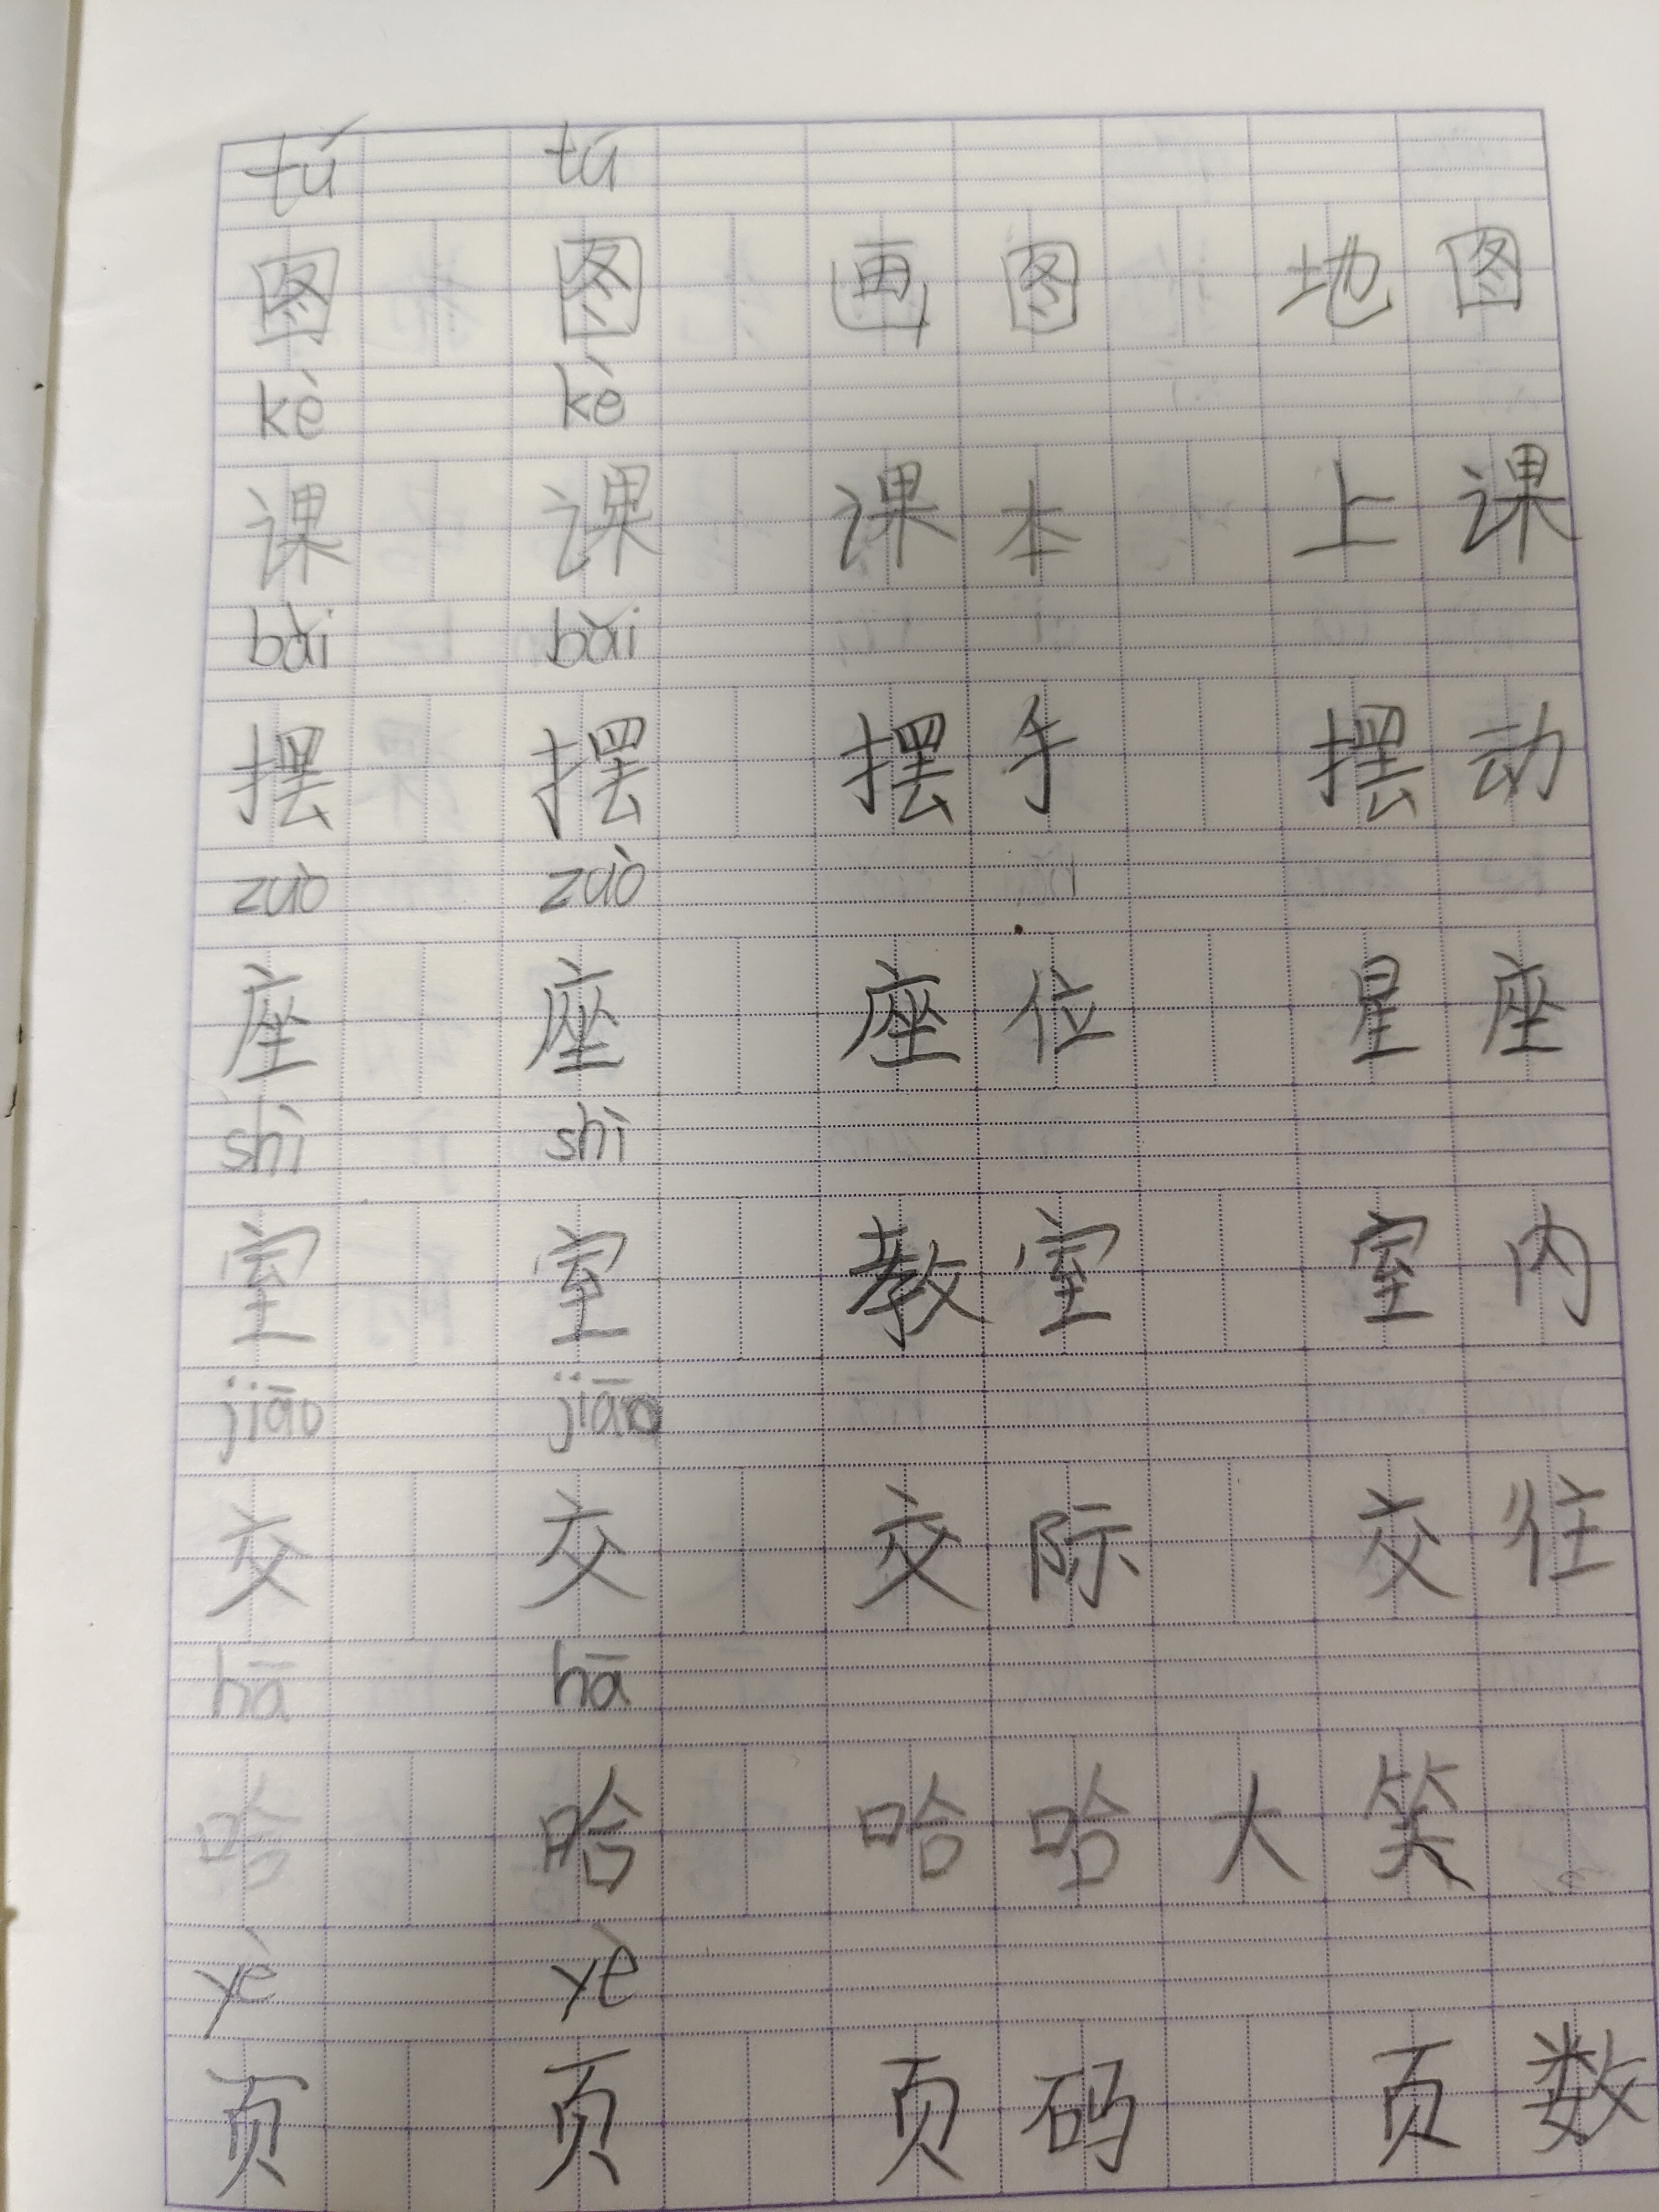 tú tú
图 图 画图 地图
kè kè
课 课 课本 上课
bǎi bǎi
摆 摆 摆手 摆动
zuò zuò
座 座 座位 星座
shì shì
室 室 教室 室内
jiāo jiāo
交 交 交际 交往
hā hā
哈 哈 哈哈大笑
yè yè
页 页 页码 页数